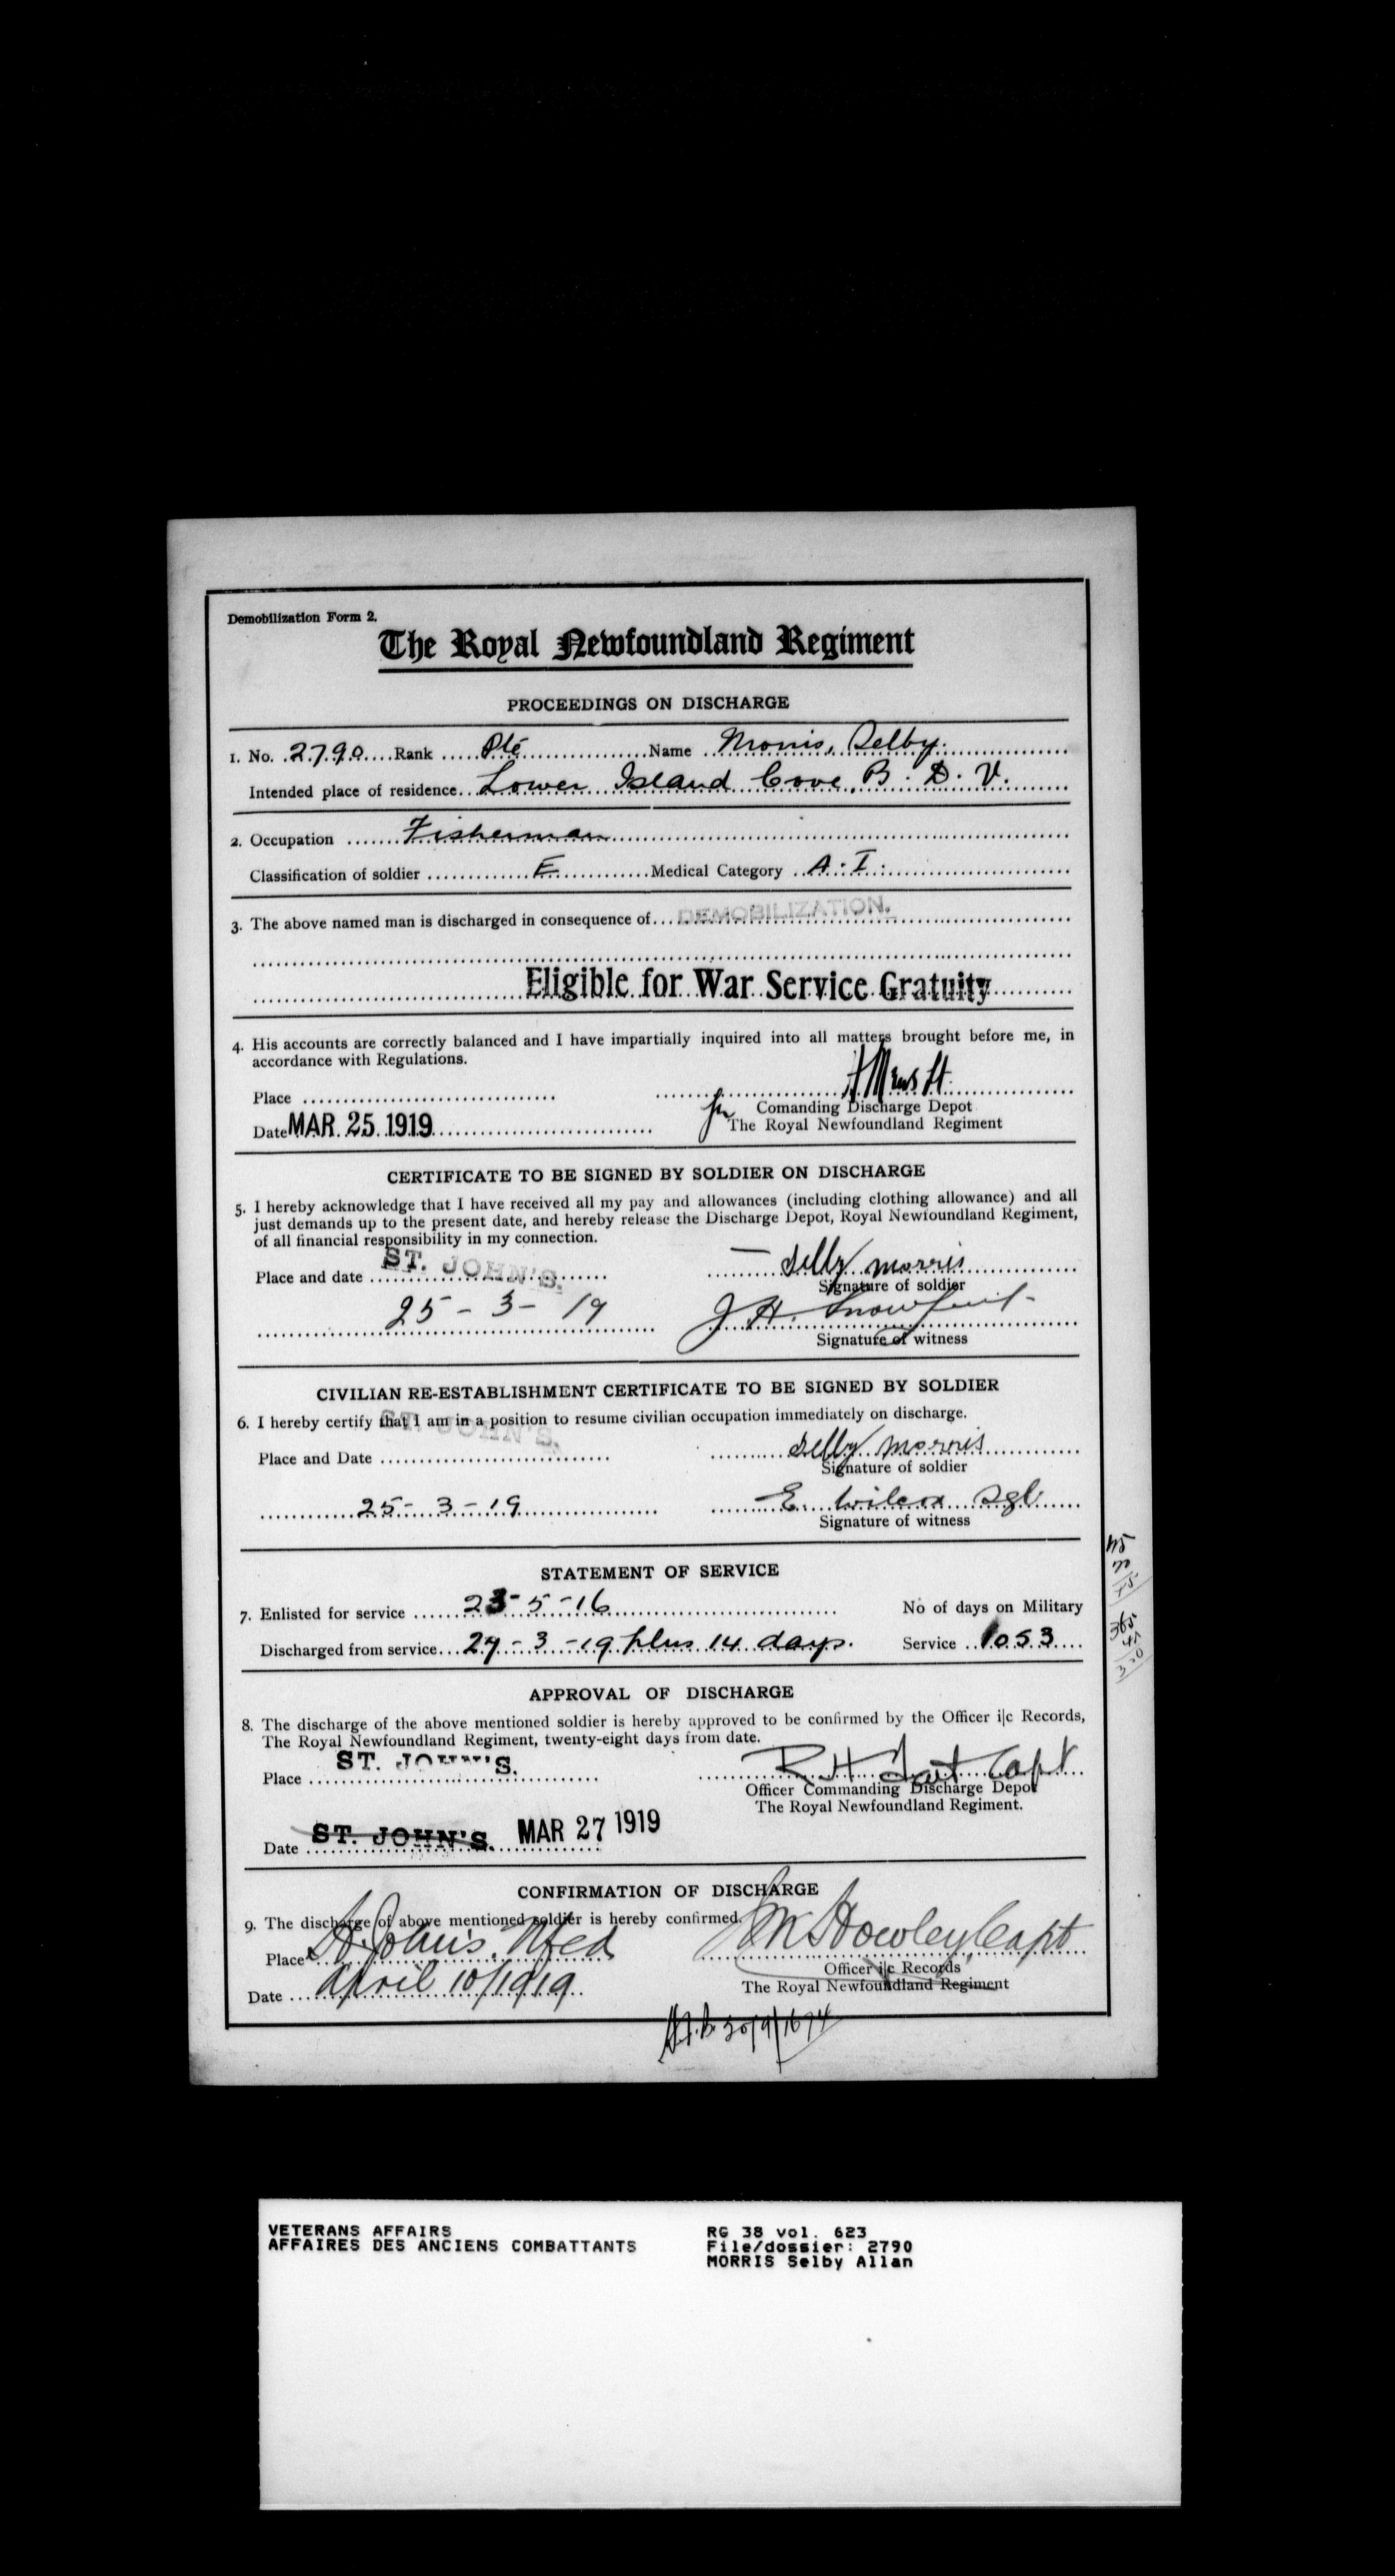 Demobilization Form 2.
The Royal Newfoundland Regiment
PROCEEDINGS ON DISCHARGE
1. No. 2790 Rank Pte Name Morris, Selby.
Intended place of residence Lower Island Cove, B. D. V.
2. Occupation Fisherman
Classification of soldier E Medical Category A. I.
3. The above named man is discharged in consequence of DEMOBILIZATION.
Eligible for War Service Gratuity
4. His accounts are correctly balanced and I have impartially inquired into all matters brought before me, in
accordance with Regulations.
Place
for Comanding Discharge Depot
Date MAR. 25 1919 The Royal Newfoundland Regiment
CERTIFICATE TO BE SIGNED BY SOLDIER ON DISCHARGE
5. I hereby acknowledge that I have received all my pay and allowances (including clothing allowance) and all
just demands up to the present date, and hereby release the Discharge Depot, Royal Newfoundland Regiment,
of all financial responsibility in my connection.
Place and date ST. JOHN'S. Selby Morris
Signature of soldier
25 - 3 - 19 J. H.
Signature of witness
CIVILIAN RE-ESTABLISHMENT CERTIFICATE TO BE SIGNED BY SOLDIER
6. I hereby certify that I am in a position to resume civilian occupation immediately on discharge.
ST. JOHN'S.
Place and Date Selby Morris
Signature of soldier
25 - 3 - 19 E. Wilcox Sgt
Signature of witness
STATEMENT OF SERVICE
7. Enlisted for service 23-5-16 No of days on Military
Discharged from service 27-3-19 plus 14 days. Service 1053
APPROVAL OF DISCHARGE
8. The discharge of the above mentioned soldier is hereby approved to be confirmed by the Officer i|c Records,
The Royal Newfoundland Regiment, twenty-eight days from date.
Place ST. JOHN'S. R H Tait Capt
Officer Commanding Discharge Depot
The Royal Newfoundland Regiment.
Date ST. JOHN'S. MAR 27 1919
CONFIRMATION OF DISCHARGE
9. The discharge of above mentioned soldier is hereby confirmed.
Place St. John's, Nfld Howley, Capt
Officer i|c Records
Date April 10/1919 The Royal Newfoundland Regiment
VETERANS AFFAIRS
AFFAIRES DES ANCIENS COMBATTANTS
RG 38 vol. 623
File/dossier: 2790
MORRIS Selby Allan